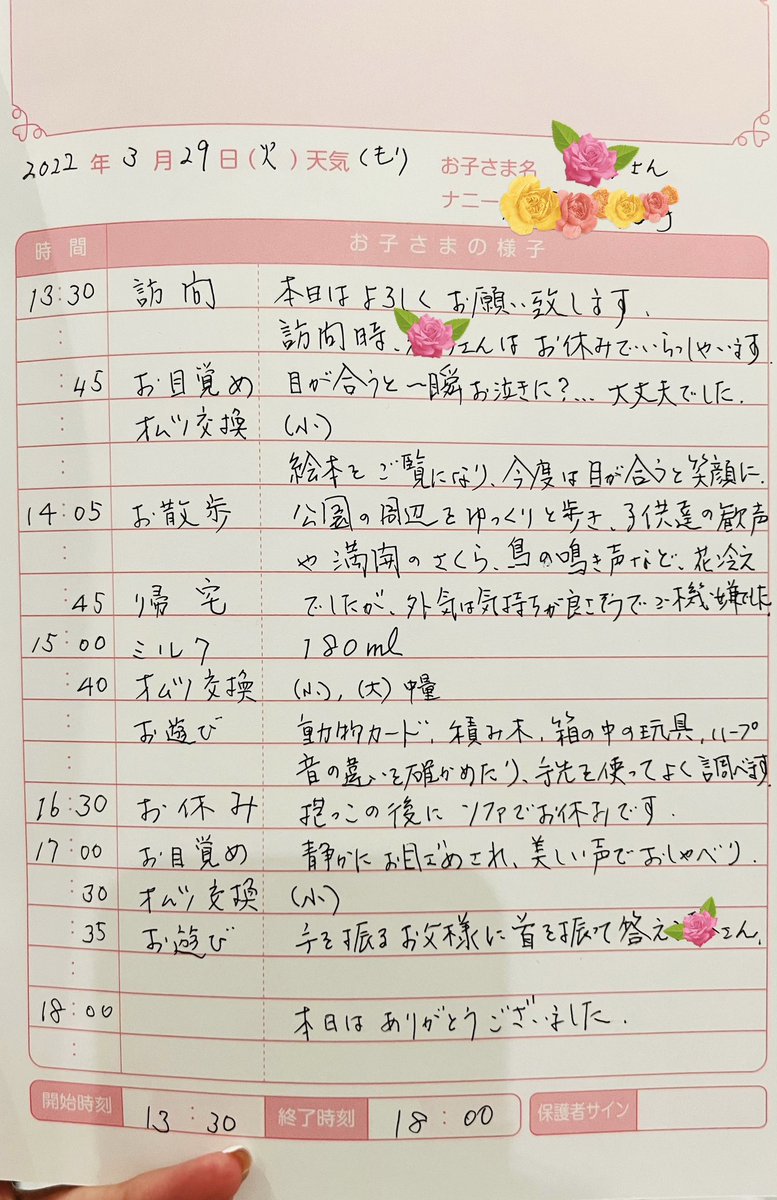 2022年3月29日(火)天気くもり
お子さま名 さん
ナニー
時間 お子さまの様子
13:30 訪問 本日はよろしくお願い致します.
: 訪問時、 さんはお休みでいらっしゃいます.
:45 お目覚め 目が合うと一瞬お泣きに?... 大丈夫でした.
: オムツ交換 (小)
: 絵本をご覧になり、今度は目が合うと笑顔に.
14:05 お散歩 公園の周辺をゆっくりと歩き、子供達の歓声
: や満開のさくら、鳥の鳴き声など、花冷え
:45 帰宅 でしたが、外気は気持ちが良さそうでご機嫌でした.
15:00 ミルク 180ml
:40 オムツ交換 (小),(大)中量
: お遊び 動物カード、積み木、箱の中の玩具、ハープ
: 音の違いを確かめたり、手先を使ってよく調べます.
16:30 お休み 抱っこの後にソファでお休みです.
17:00 お目覚め 静かにお目ざめされ、美しい声でおしゃべり.
:30 オムツ交換 (小)
:35 お遊び 手を振るお父様に首を振って答え さん.
:
18:00 本日はありがとうございました.
:
開始時刻 13:30 終了時刻 18:00 保護者サイン